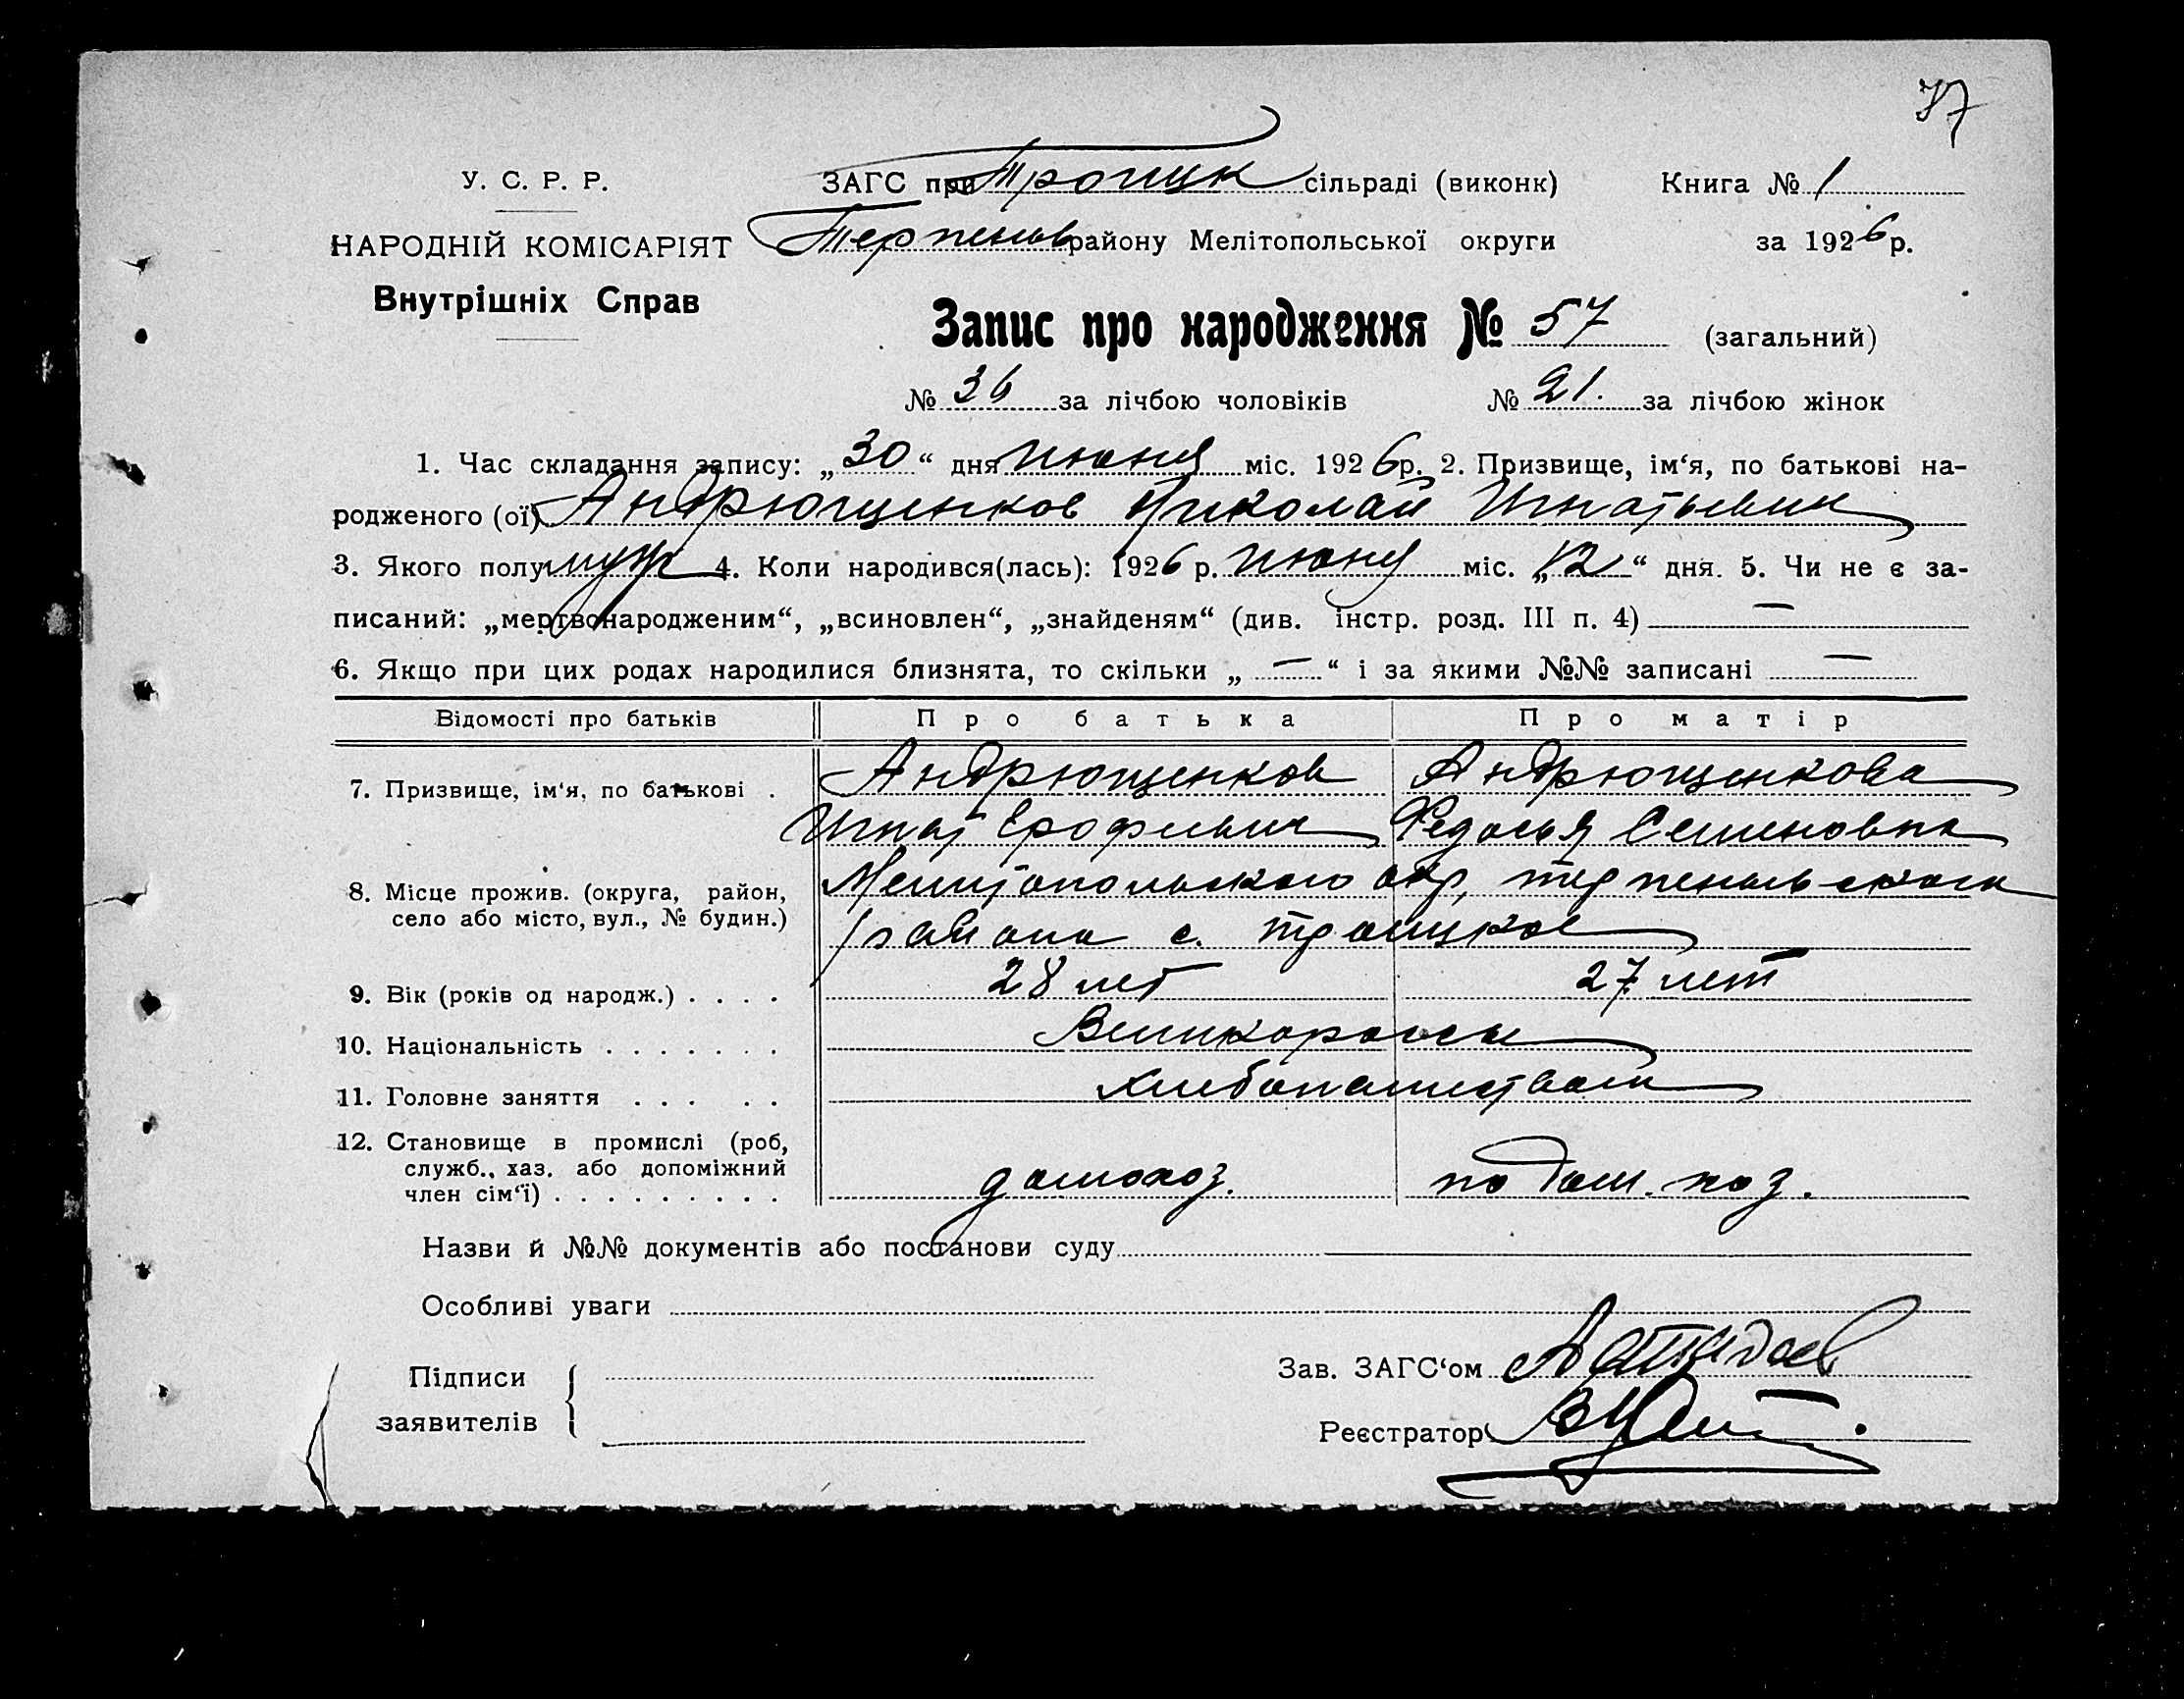 77
У. С. Р. Р.
ЗАГС при Троицк сільраді (виконк)
Книга № 1
НАРОДНІЙ КОМІСАРІЯТ
Терпеньев району Мелітопольської округи
за 1926 р.
Внутрішніх Справ
Запис про народження № 57 (загальний)
№ 36 за лічбою чоловіків № 21. за лічбою жінок
1. Час складання запису: „30“ дня июня міс. 1926 р. 2. Призвище, ім‘я, по батькові на-
родженого (ої) Андрющенков Николай Игнатьевич
3. Якого полу муж 4. Коли народився(лась): 1926 р. июня міс. „12“ дня. 5. Чи не є за-
писаний: „мертвонародженим“, „всиновлен“, „знайденям“ (див. інстр. розд. III п. 4) —
6. Якщо при цих родах народилися близнята, то скільки „ — “ і за якими №№ записані —
Відомості про батьків Про батька Про матір
7. Призвище, ім‘я, по батькові . Андрющенков Андрющенкова
Игнат Ерофеевич Федосья Семеновна
8. Місце прожив. (округа, район, Мелитопольского окр, терпеньевского
село або місто, вул., № будин.) района с. троицкое
9. Вік (років од народж.) . . . . 28 лет 27 лет
10. Національність . . . . . . . Великороссы
11. Головне заняття . . . . . хлебопашеством
12. Становище в промислі (роб,
служб., хаз. або допоміжний
член сім‘ї) . . . . . . . . . домохоз. по дом. хоз.
Назви й №№ документів або постанови суду
Особливі уваги
Підписи
заявителів
Зав. ЗАГС‘ом
Реєстратор